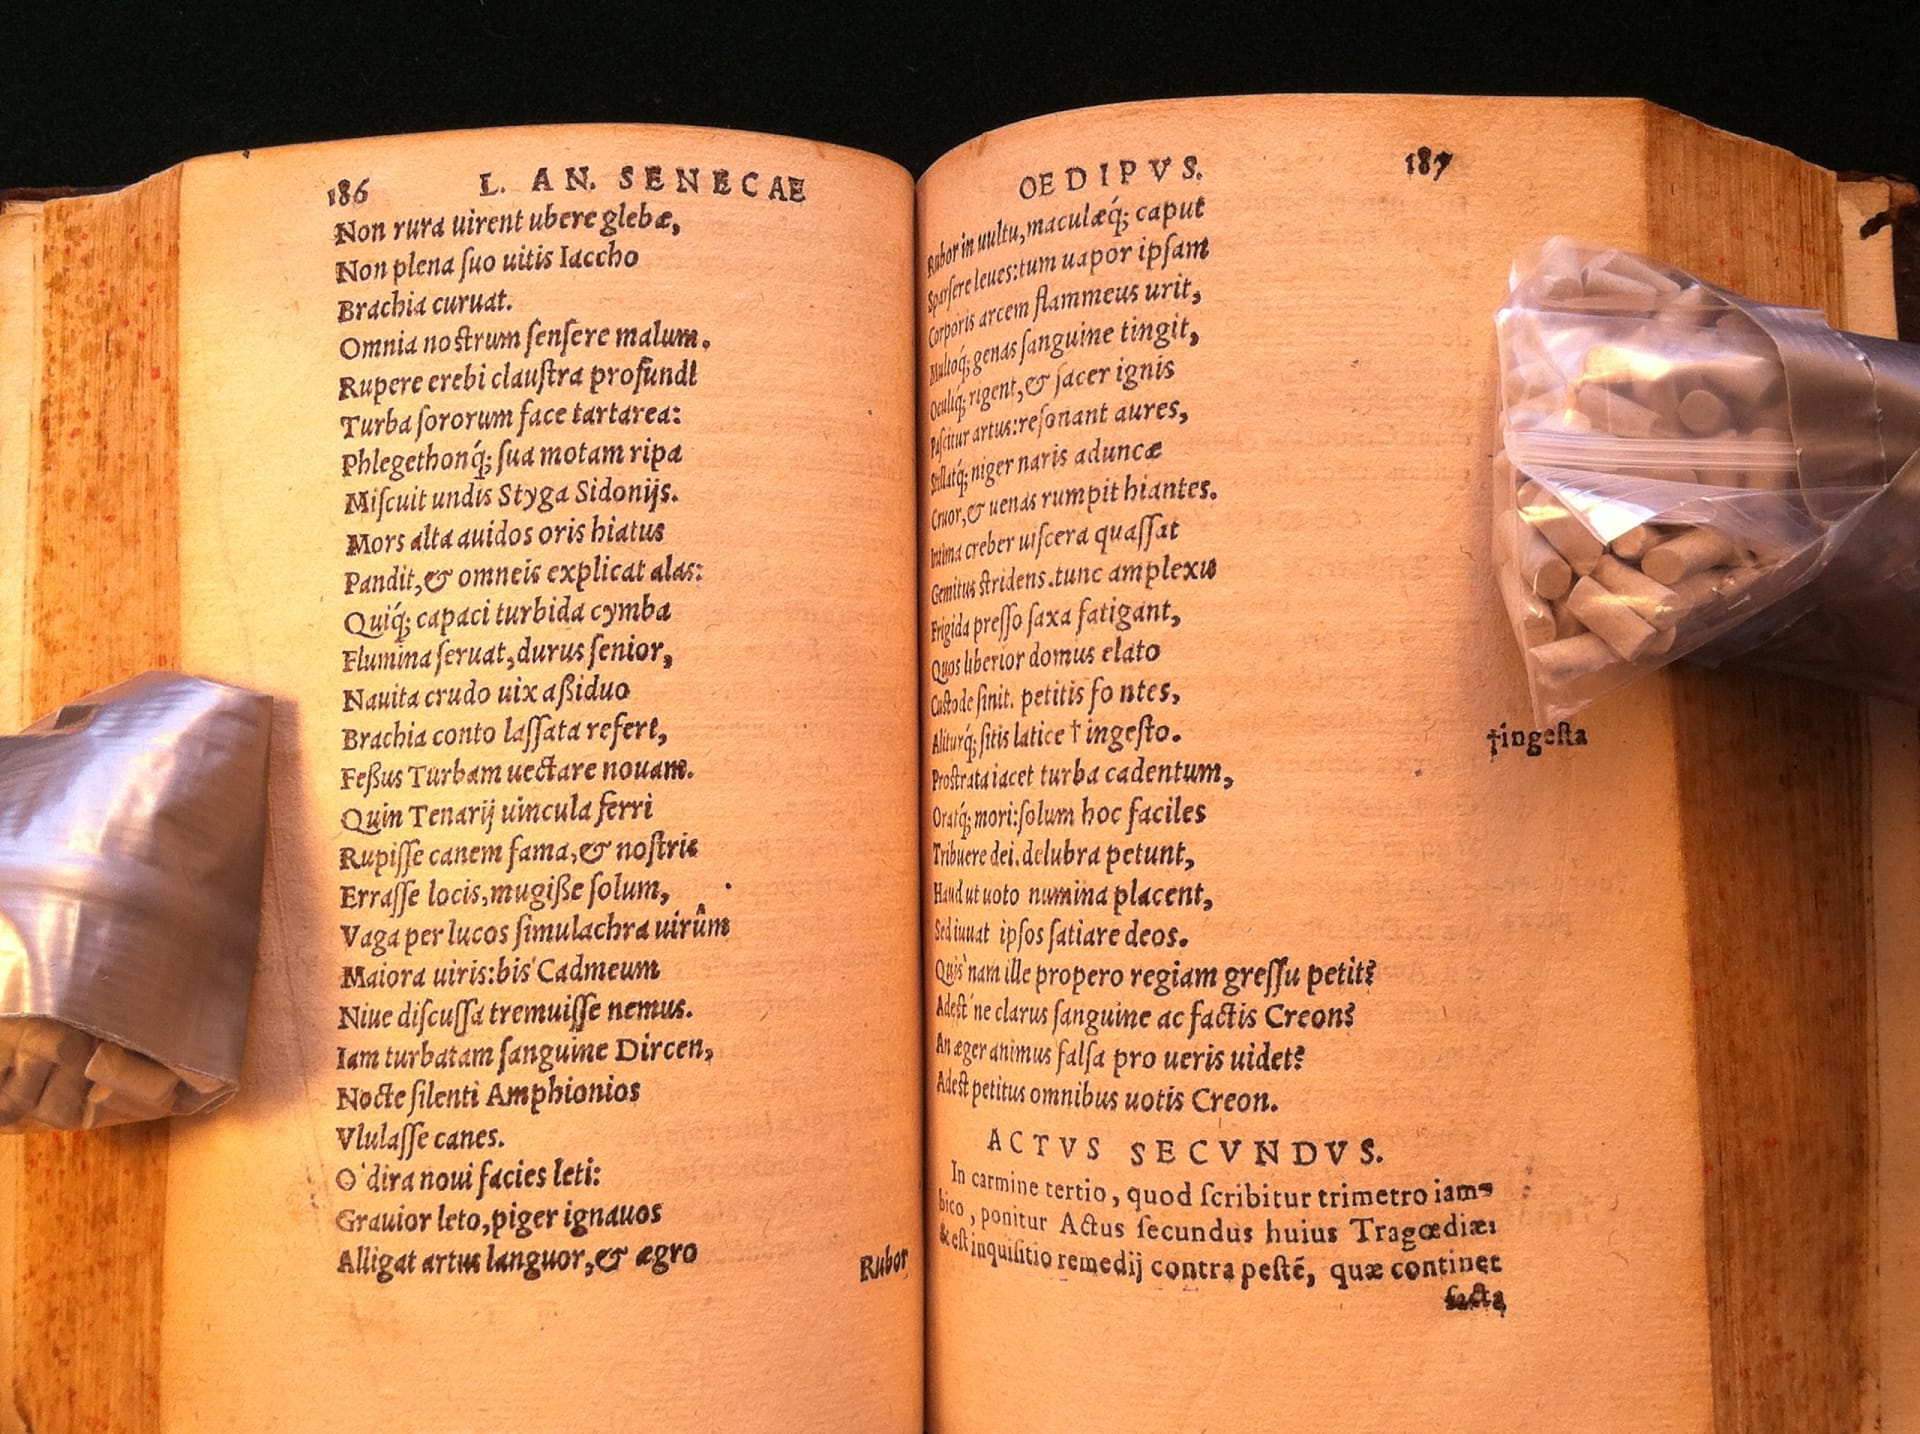 186 L. AN. SENECAE
Non rura uirent ubere glebæ,
Non plena ſuo uitis Iaccho
Brachia curuat.
Omnia noſtrum ſenſere malum.
Rupere erebi clauſtra profundi
Turba ſororum face tartarea:
Phlegethonq́; ſua motam ripa
Miſcuit undis Styga Sidonijs.
Mors alta auidos oris hiatus
Pandit, & omneis explicat alas:
Quiq́; capaci turbida cymba
Flumina ſeruat, durus ſenior,
Nauita crudo uix aßiduo
Brachia conto laſſata refert,
Feßus Turbam uectare nouam.
Quin Tenarij uincula ferri
Rupiſſe canem fama, & noſtris
Erraſſe locis, mugiße ſolum,
Vaga per lucos ſimulachra uirûm
Maiora uiris: bis Cadmeum
Niue diſcuſſa tremuiſſe nemus.
Iam turbatam ſanguine Dircen,
Nocte ſilenti Amphionios
Vlulaſſe canes.
O' dira noui facies leti:
Grauior leto, piger ignauos
Alligat artus languor, & ægro
Rubor
OEDIPVS. 187
Rubor in uultu, maculæq́; caput
Sparſere leues: tum uapor ipſam
Corporis arcem flammeus urit,
Multoq́; genas ſanguine tingit,
Oculiq; rigent, & ſacer ignis
Paſcitur artus: reſonant aures,
Stillatq́; niger naris aduncæ
Cruor, & uenas rumpit hiantes.
Intima creber uiſcera quaſſat
Gemitus ſtridens. tunc amplexu
Frigida preſſo ſaxa fatigant,
Quos liberior domus elato
Cuſtode ſinit. petitis fontes,
Aliturq́; ſitis latice † ingeſto.
†ingeſta
Proſtrata iacet turba cadentum,
Oratq́; mori: ſolum hoc faciles
Tribuere dei. delubra petunt,
Haud ut uoto numina placent,
Sed iuuat ipſos ſatiare deos.
Quis' nam ille propero regiam greſſu petit?
Adest' ne clarus ſanguine ac factis Creon?
An æger animus falſa pro ueris uidet?
Adest petitus omnibus uotis Creon.
ACTVS SECVNDVS.
In carmine tertio, quod ſcribitur trimetro iam-
bico, ponitur Actus ſecundus huius Tragœdiæ:
& eſt inquiſitio remedij contra peſtē, quæ continet
facta